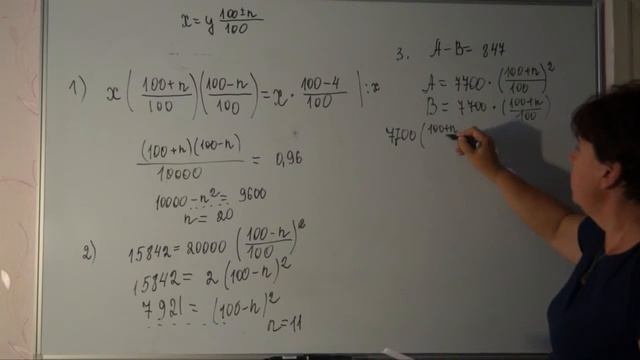 x = y (100±n)/100
1) x ((100+n)/100)((100-n)/100) = x · (100-4)/100 | : x
(100+n)(100-n)/10000 = 0,96
10000 - n² = 9600
n = 20
2) 15842 = 20000 ((100-n)/100)²
15842 = 2 (100-n)²
7921 = (100-n)²
n = 11
3. A-B = 847
A = 7700 · ((100+n)/100)²
B = 7700 · ((100+n)/100)
7700 (100+n